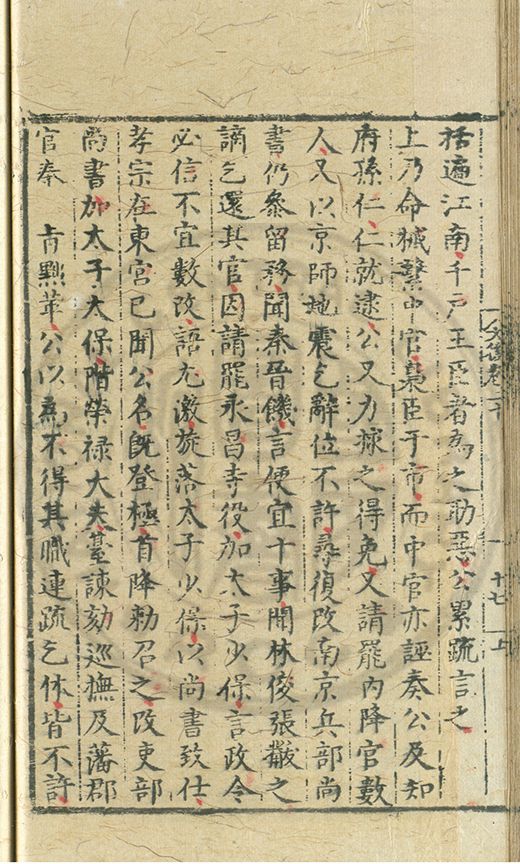 括遍江南千戶王臣者為之助惡公累疏言之
上乃命械繫中官梟臣于市而中官亦誣奏公及知
府孫仁仁就逮公又力救之得免又請罷內降官數
人又以京師地震乞辭位不許尋復改南京兵部尚
書仍參留務聞秦晉饑言便宜十事開林俊張黻之
謫乞還其官因請罷永昌寺役加太子少保言政令
必信不宜數改語尤激旋落太子少保以尚書致仕
孝宗在東宮已聞公名旣登極首降勑召之改吏部
尚書加太子太保階榮祿大夫臺諫劾巡撫及藩郡
官奉 㫖黜革公以為不得其職連疏乞休皆不許
十七
上